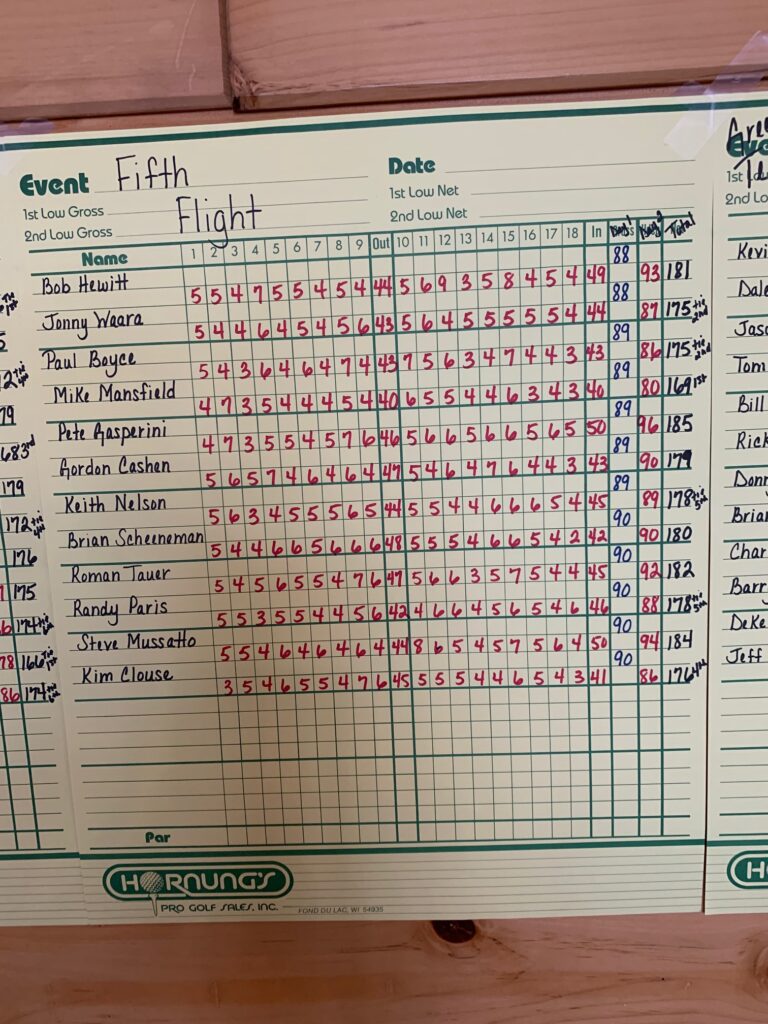 Event Fifth
Flight
1st Low Gross
2nd Low Gross
Date
1st Low Net
2nd Low Net
Name 1 2 3 4 5 6 7 8 9 Out 10 11 12 13 14 15 16 17 18 In Day 1 Day 2 Total
Bob Hewitt 5 5 4 7 5 5 4 5 4 44 5 6 9 3 5 8 4 5 4 49 88 93 181
Jonny Waara 5 4 4 6 4 5 4 5 6 43 5 6 4 5 5 5 5 5 4 44 88 87 175 tie 2nd
Paul Boyce 5 4 3 6 4 6 4 7 4 43 7 5 6 3 4 7 4 4 3 43 89 86 175 tie 2nd
Mike Mansfield 4 7 3 5 4 4 4 5 4 40 6 5 5 4 4 6 3 4 3 40 89 80 169 1st
Pete Gasperini 4 7 3 5 5 4 5 7 6 46 5 6 6 5 6 6 5 6 5 50 89 96 185
Gordon Cashen 5 6 5 7 4 6 4 6 4 47 5 4 6 4 7 6 4 4 3 43 89 90 179
Keith Nelson 5 6 3 4 5 5 5 6 5 44 5 5 4 4 6 6 6 5 4 45 89 89 178 tie 5th
Brian Scheeneman 5 4 4 6 6 5 6 6 6 48 5 5 5 4 6 6 5 4 2 42 90 90 180
Roman Tauer 5 4 5 6 5 5 4 7 6 47 5 6 6 3 5 7 5 4 4 45 90 92 182
Randy Paris 5 5 3 5 5 4 4 5 6 42 4 6 6 4 5 6 5 4 6 46 90 88 178 tie 5th
Steve Mussatto 5 5 4 6 4 6 4 6 4 44 8 6 5 4 5 7 5 6 4 50 90 94 184
Kim Clouse 3 5 4 6 5 5 4 7 6 45 5 5 5 4 4 6 5 4 3 41 90 86 176 4th
Par
HORNUNG'S
PRO GOLF SALES, INC.
FOND DU LAC, WI 54935
179
172
176
175
174
166
86 174
Kevi
Dale
Jaso
Tom
Bill
Rick
Donn
Brian
Char
Barr
DeKe
Jeff